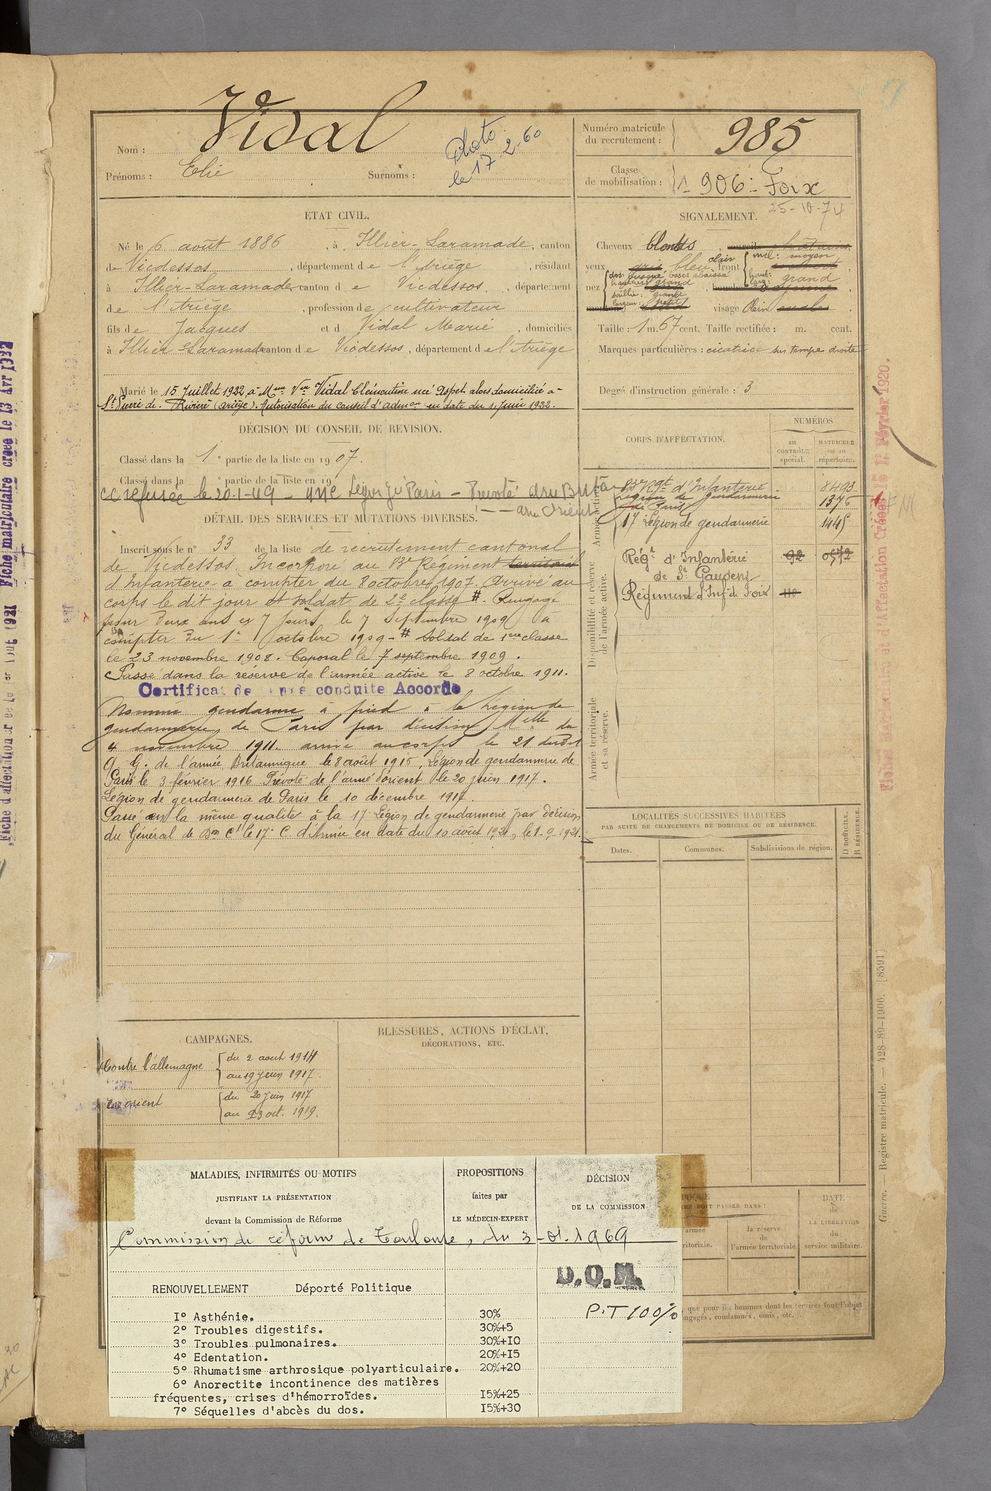 Vidal
Nom :
Prénoms : Elie Surnoms :
Photo
le 17.2.60
Numéro matricule
du recrutement : 985
Classe
de mobilisation : 1906 - Foix
25-10-74
ÉTAT CIVIL.
Né le 6 août 1886, à Illier-Laramade, canton
de Vicdessos, département de l'Ariège, résidant
à Illier-Laramade canton de Vicdessos, département
de l'Ariège, profession de cultivateur
fils de Jacques et d Vidal Marie, domiciliés
à Illier-Laramade canton de Vicdessos, département de l'Ariège
Marié le 15 Juillet 1922, à Mme Vve Vidal Clémentine née Aspet alors domiciliée à
St Pierre de Rivière (Ariège). Autorisation du conseil d'admon en date du 1 Juin 1922.
SIGNALEMENT.
Cheveux blonds
yeux bleu clair, front
mil: moyen
haut: grand
nez
visage plein
Taille : 1 m. 67 cent. Taille rectifiée : m. cent.
Marques particulières : cicatrice sur tempe droite
Degré d'instruction générale : 3
DÉCISION DU CONSEIL DE REVISION.
Classé dans la 1e partie de la liste en 1907.
Classé dans la e partie de la liste en 19
cc refusée le 20-1-49 -
DÉTAIL DES SERVICES ET MUTATIONS DIVERSES.
Inscrit sous le n° 33 de la liste de recrutement cantonal
de Vicdessos. Incorporé au 83e Régiment territorial
d'Infanterie à compter du 8 octobre 1907. Arrivé au
corps le dit jour et soldat de 2e classe #. Rengagé
pour deux ans et 7 jours le 7 Septembre 1909 à
compter du 1er octobre 1909 - # Soldat de 1ère classe
le 23 novembre 1908. Caporal le 7 septembre 1909.
Passé dans la réserve de l'armée active le 8 octobre 1911.
Certificat de bonne conduite Accordé
Nommé gendarme à pied à la Légion de
gendarmerie de Paris par décision Mlle du
4 novembre 1911. arrivé au corps le 21 dudit
Q. G. de l'armée Britannique le 8 août 1915, Légion de gendarmerie de
Paris le 3 février 1916 Prévôté de l'armée d'orient le 20 juin 1917.
Légion de gendarmerie de Paris le 10 décembre 1917.
Passé en la même qualité à la 17 Légion de gendarmerie par décision
du Général de Bon Ct le 17e C. d'Armée en date du 10 août 1921, le 1-9-1921.
CORPS D'AFFECTATION.
NUMÉROS
AU
CONTRÔLE
spécial.
MATRICULE
ou au
répertoire.
Armée active.
83e Rgt d'Infanterie 8403
Légion de gendarmerie
de Paris 1376
17 Légion de gendarmerie 1445
Disponibilité et réserve
de l'armée active.
Régt d'Infanterie
de St Gaudens
Régiment d'Inf. de Foix
Armée territoriale
et sa réserve.
LOCALITÉS SUCCESSIVES HABITÉES
PAR SUITE DE CHANGEMENTS DE DOMICILE OU DE RÉSIDENCE.
Dates.
Communes.
Subdivisions de région.
D DOMICILE.
R RÉSIDENCE.
CAMPAGNES.
Contre l'allemagne
du 2 aout 1914
au 19 juin 1917.
orient
du 20 juin 1917
au 23 oct. 1919.
BLESSURES, ACTIONS D'ÉCLAT,
DÉCORATIONS, ETC.
MALADIES, INFIRMITÉS OU MOTIFS
JUSTIFIANT LA PRÉSENTATION
devant la Commission de Réforme
PROPOSITIONS
faites par
LE MÉDECIN-EXPERT
DÉCISION
DE LA COMMISSION
Commission de réforme de Toulouse, du 3-01.1969
D.O.M.
RENOUVELLEMENT Déporté Politique
P.T 100%
I° Asthénie. 30%
2° Troubles digestifs. 30%+5
3° Troubles pulmonaires. 30%+I0
4° Edentation. 20%+I5
5° Rhumatisme arthrosique polyarticulaire. 20%+20
6° Anorectite incontinence des matières
fréquentes, crises d'hémorroïdes. I5%+25
7° Séquelles d'abcès du dos. I5%+30
DATE
DE
LA LIBÉRATION
du
service militaire.
la réserve
de
l'armée territoriale.
que pour les hommes dont les services font l'objet
engagés, condamnés, omis, etc.
Guerre. — Registre matricule. — 428-89-1906. [8591]
Fiche matriculaire créée le 13 Avr 1922